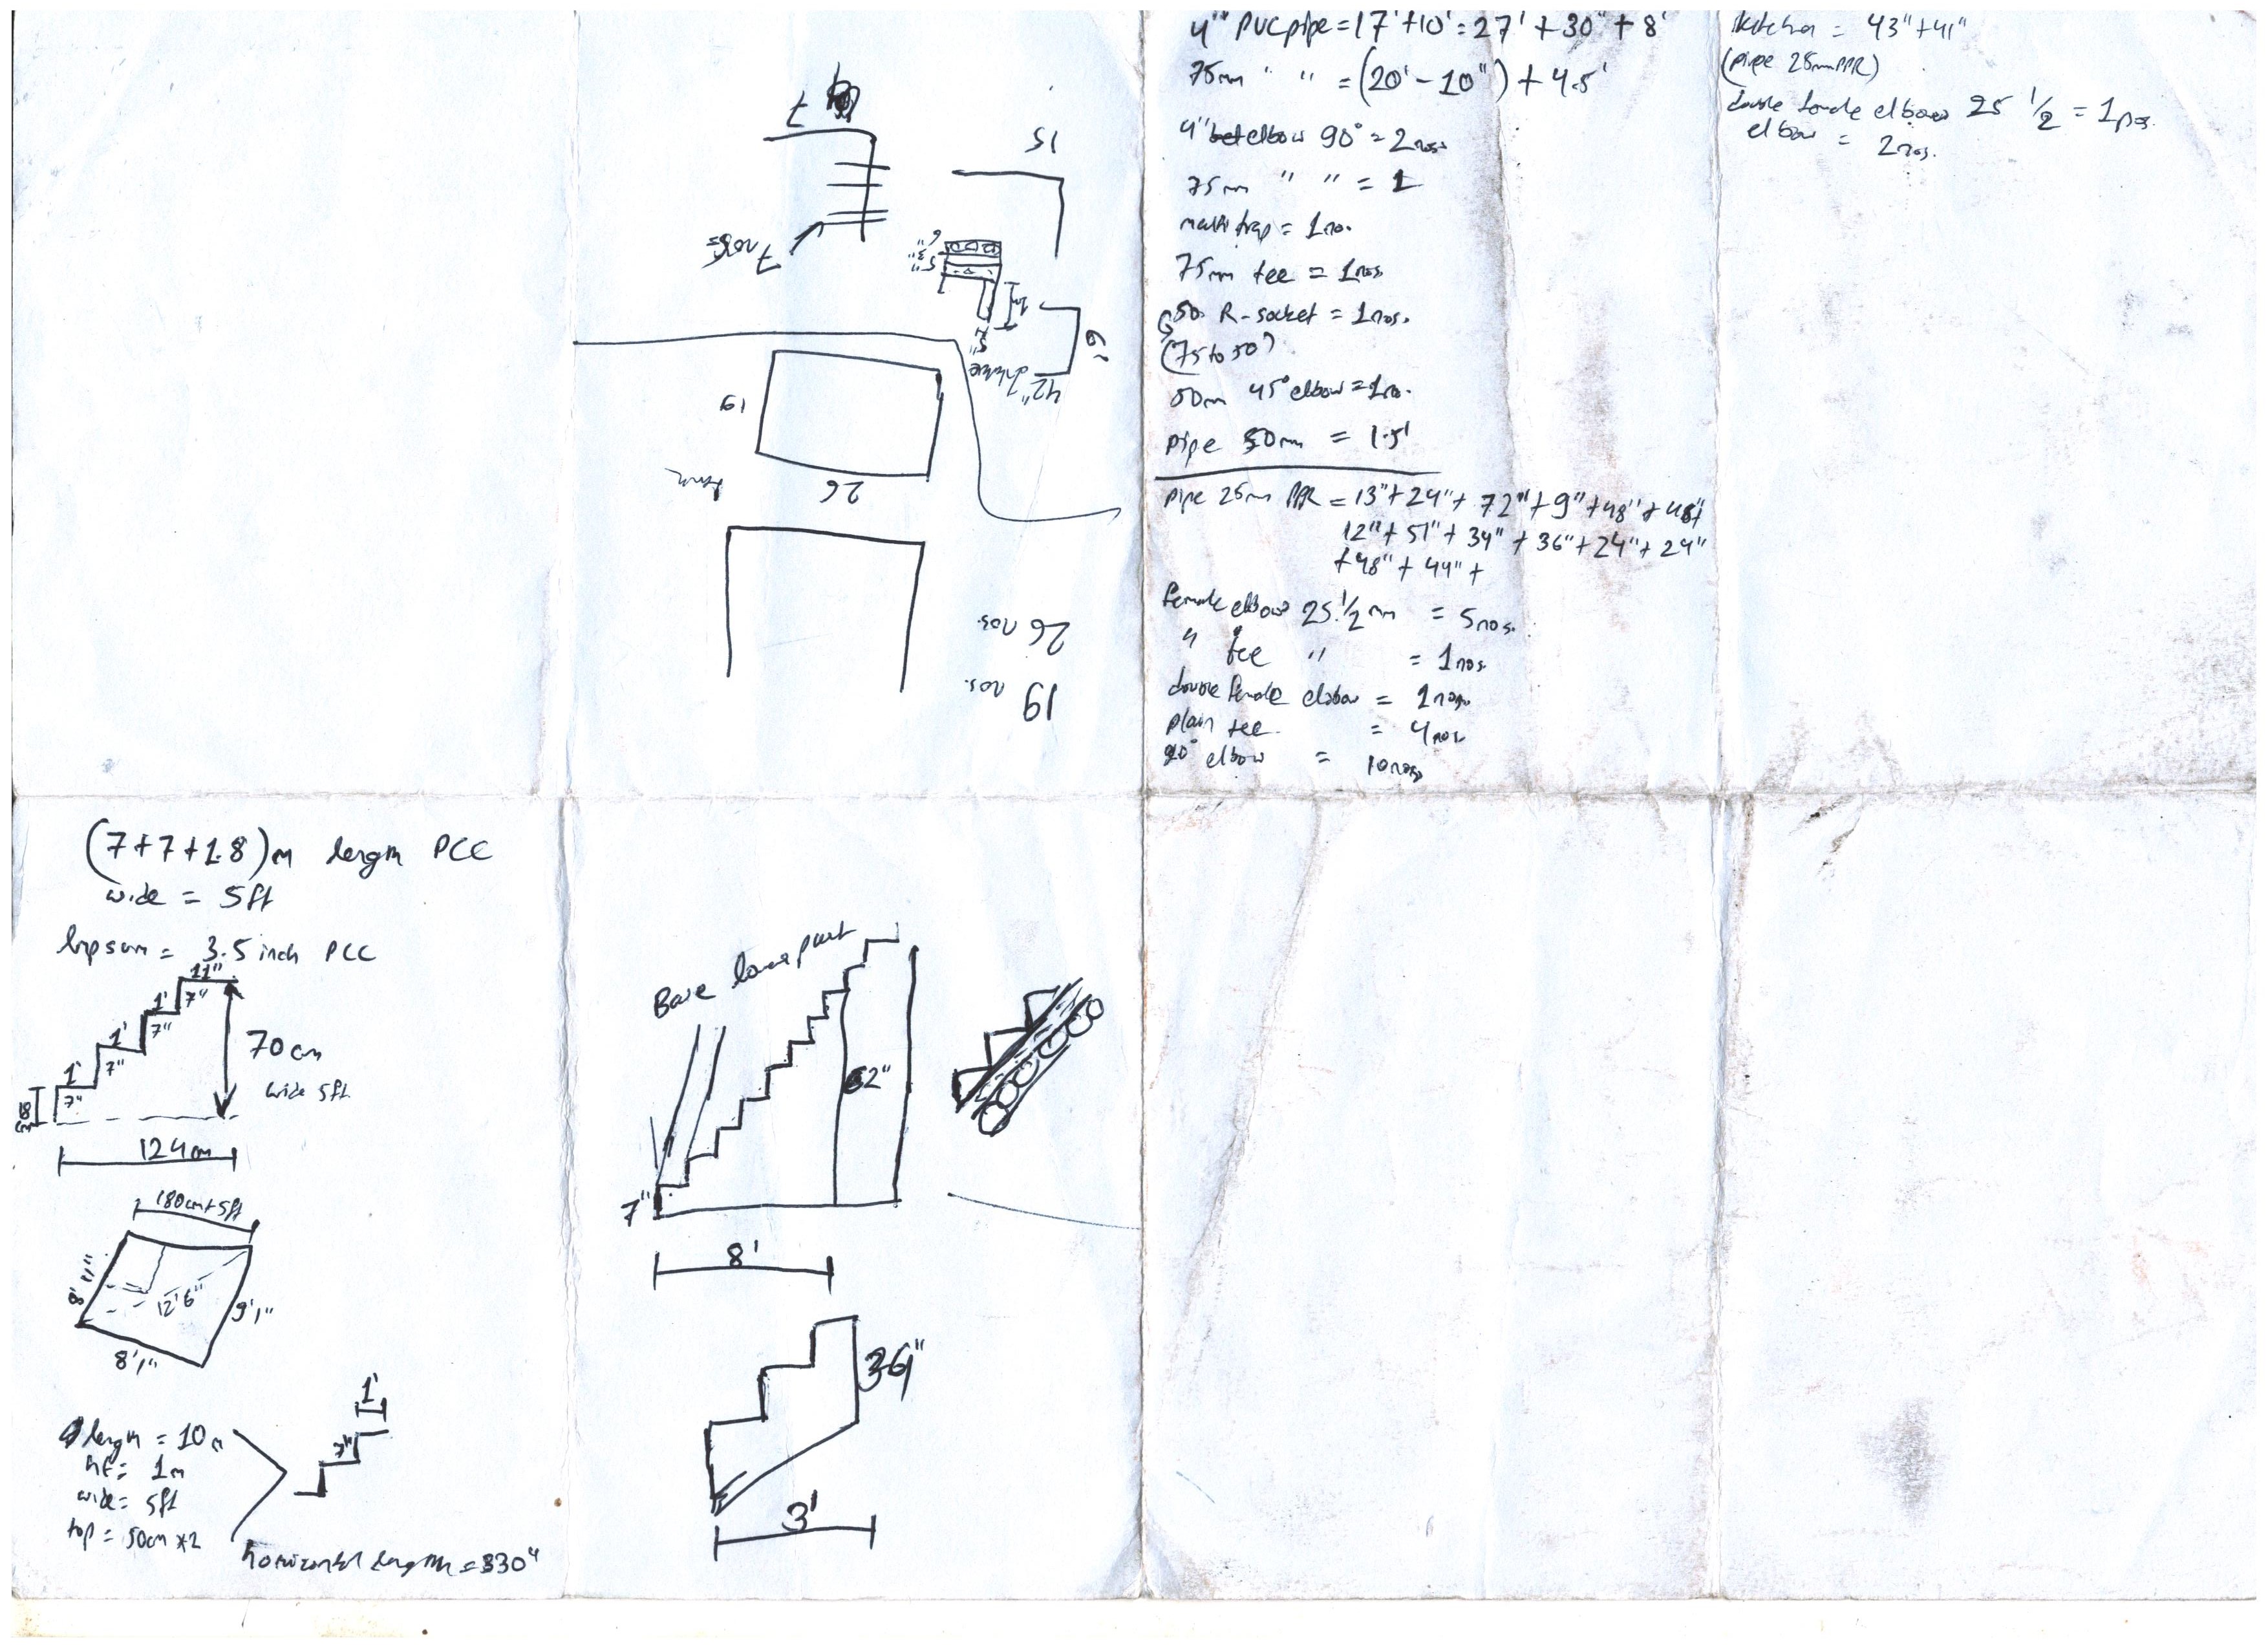 4" PVC pipe = 17' + 10' = 27' + 30" + 8'
75mm " " = (20' - 10") + 4.5'
4" elbow 90° = 2nos.
75mm " " = 1
multi trap = 1no.
75mm tee = 1nos.
50 R-socket = 1nos.
(75 to 50)
50m 45° elbow = 1no.
pipe 50mm = 1.5'
pipe 25mm PPR = 13" + 24" + 72" + 9" + 48" + 48" +
12" + 51" + 34" + 36" + 24" + 24"
+ 48" + 44" +
female elbow 25 1/2 mm = 5nos.
" tee " = 1nos.
double female elbow = 1nos.
plain tee = 4nos.
90° elbow = 10nos.
kitchen = 43" + 41"
(pipe 25mm PPR)
double female elbow 25 1/2 = 1nos.
elbow = 2nos.
7
15
7 nos
6"
3"
5"
1m
5"
6'
42" distance
19
26
26 nos.
19 nos.
(7+7+1.8)m length PCC
wide = 5ft
3.5 inch PCC
11"
1' 7"
1' 7"
1' 7"
7"
18 cm
70cm
wide 5ft
124cm
180cm+5ft
8' 11"
12' 6"
9'1"
8'1"
length = 10m
ht = 1m
wide = 5ft
top = 50cm *2
1'
7"
horizontal length = 330"
Base part
7"
62"
8'
36"
3'